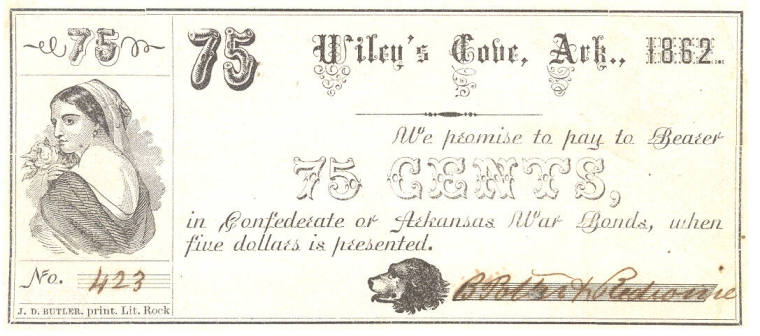 75
75 Wiley's Cove, Ark., 1862.
We promise to pay to Bearer
75 CENTS,
in Confederate or Arkansas War Bonds, when
five dollars is presented.
No. 423
J. D. BUTLER, print. Lit. Rock